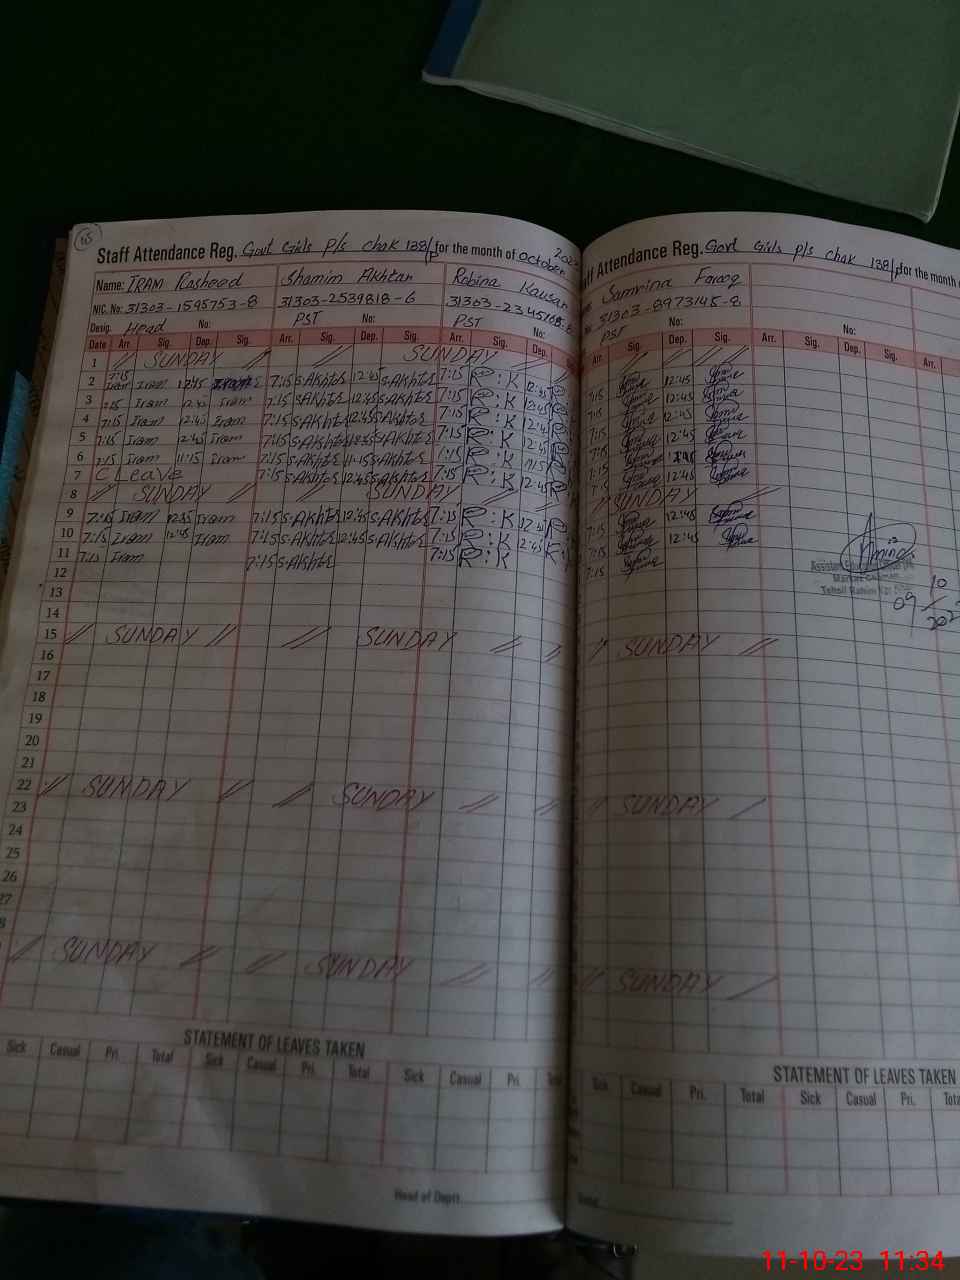 Staff Attendance Reg. Govt Girls P/s chak 138/P for the month of October
Name: IRAM Rasheed Shamim Akhtar Robina Kausar
NIC. No: 31303-1595753-8 31303-2539818-6
Desig. Head No: PST PST No:
Date Arr. Sig. Dep. Sig. Arr. Sig. Dep. Sig. Arr. Sig. Dep.
1 SUNDAY SUNDAY
2 7:15 Iram 12:45 7:15 S.Akhtar 12:45 S.Akhtar 7:15 R:K 12:45
3 7:15 Iram 12:45 Iram 7:15 S.Akhtar 12:45 S.Akhtar 7:15 R:K 12:45
4 7:15 Iram 12:45 Iram 7:15 S.Akhtar 12:45 S.Akhtar 7:15 R:K 12:45
5 7:15 Iram 12:45 Iram 7:15 S.Akhtar 12:45 S.Akhtar 7:15 R:K 12:45
6 7:15 Iram 11:15 Iram 7:15 S.Akhtar 11:15 S.Akhtar 7:15 R:K 11:15
7 C Leave 7:15 S.Akhtar 12:45 S.Akhtar 7:15 R:K 12:45
8 SUNDAY SUNDAY
9 7:15 Iram 12:45 Iram 7:15 S.Akhtar 12:45 S.Akhtar 7:15 R:K 12:45
10 7:15 Iram 12:45 Iram 7:15 S.Akhtar 12:45 S.Akhtar 7:15 R:K 12:45
11 7:15 Iram 7:15 S.Akhtar 7:15 R:K
12
13
14
15 SUNDAY SUNDAY
16
17
18
19
20
21
22 SUNDAY SUNDAY
23
24
25
26
27
SUNDAY SUNDAY
STATEMENT OF LEAVES TAKEN
Sick Casual Pri. Total Sick Casual Pri. Total Sick Casual Pri.
Head of Deptt
Attendance Reg. Govt Girls P/s chak 138/P for the month
Samrina Farooq
31303-8973145-8
PST No: No:
Arr. Sig. Dep. Sig. Arr. Sig. Dep. Sig. Arr.
7:15 12:45
7:15 12:45
7:15 12:45
7:15 12:45
7:15
7:15 12:45
SUNDAY
7:15 12:45
7:15 12:45
7:15
09
10
SUNDAY
SUNDAY
SUNDAY
STATEMENT OF LEAVES TAKEN
Sick Casual Pri. Total Sick Casual Pri.
11-10-23 11:34